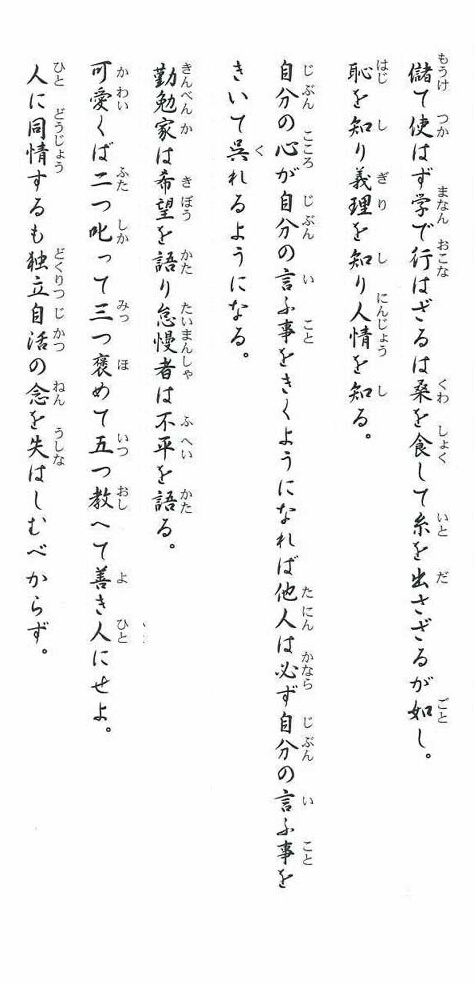 儲て使はず学で行はざるは桑を食して糸を出さざるが如し。
恥を知り義理を知り人情を知る。
自分の心が自分の言ふ事をきくようになれば他人は必ず自分の言ふ事を
きいて呉れるようになる。
勤勉家は希望を語り怠慢者は不平を語る。
可愛くば二つ叱って三つ褒めて五つ教へて善き人にせよ。
人に同情するも独立自活の念を失はしむべからず。